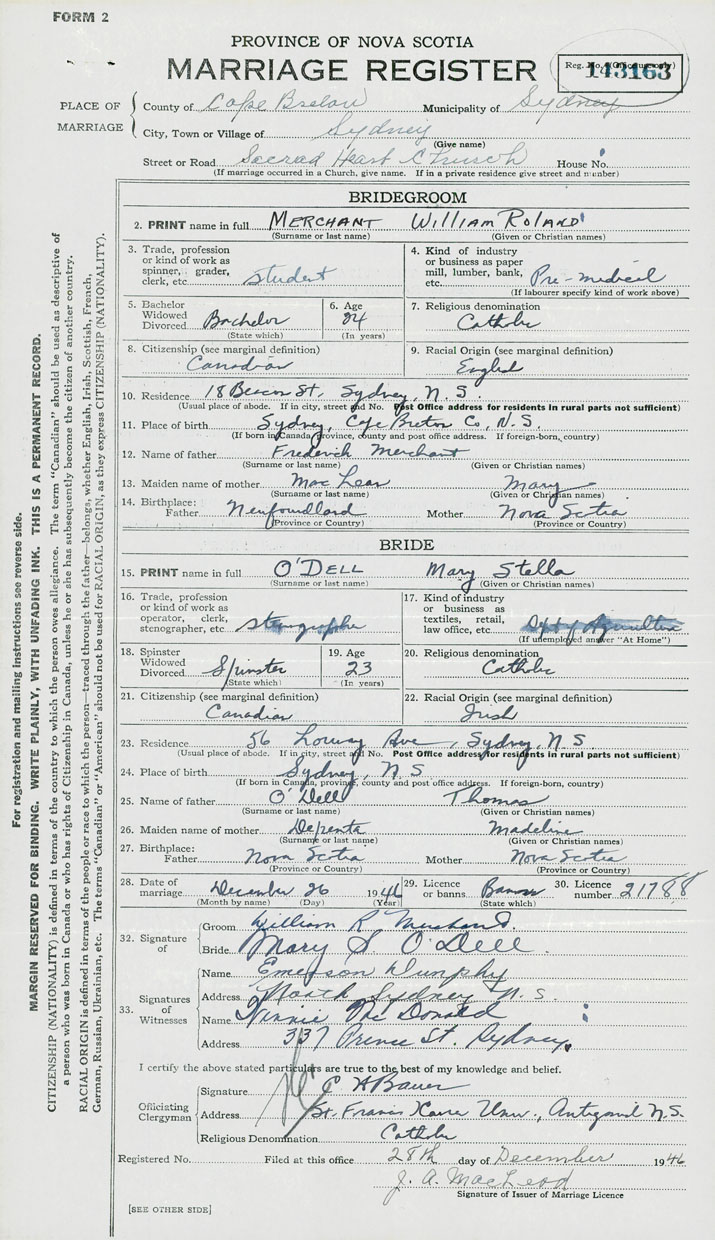 FORM 2
PROVINCE OF NOVA SCOTIA
MARRIAGE REGISTER
Reg. No. (Office use only)
143163
PLACE OF MARRIAGE
County of Cape Breton Municipality of Sydney
City, Town or Village of Sydney
(Give name)
Street or Road Sacred Heart Church House No.
(If marriage occurred in a Church, give name. If in a private residence give street and number)
BRIDEGROOM
2. PRINT name in full MERCHANT WILLIAM ROLAND
(Surname or last name) (Given or Christian names)
3. Trade, profession or kind of work as spinner, grader, clerk, etc. Student
4. Kind of industry or business as paper mill, lumber, bank, etc. Pre-medical
(If labourer specify kind of work above)
5. Bachelor Widowed Divorced Bachelor
(State which)
6. Age 24
(In years)
7. Religious denomination
Catholic
8. Citizenship (see marginal definition)
Canadian
9. Racial Origin (see marginal definition)
English
10. Residence 18 Beacon St, Sydney, N.S.
(Usual place of abode. If in city, street and No. Post Office address for residents in rural parts not sufficient)
11. Place of birth Sydney, Cape Breton Co, N.S.
(If born in Canada province, county and post office address. If foreign-born, country)
12. Name of father Frederick Merchant
(Surname or last name) (Given or Christian names)
13. Maiden name of mother MacLean Mary
(Surname or last name) (Given or Christian names)
14. Birthplace: Father Newfoundland Mother Nova Scotia
(Province or Country) (Province or Country)
BRIDE
15. PRINT name in full O'DELL Mary Stella
(Surname or last name) (Given or Christian names)
16. Trade, profession or kind of work as operator, clerk, stenographer, etc. stenographer
17. Kind of industry or business as textiles, retail, law office, etc. Dept of Agriculture
(If unemployed answer "At Home")
18. Spinster Widowed Divorced Spinster
(State which)
19. Age 23
(In years)
20. Religious denomination
Catholic
21. Citizenship (see marginal definition)
Canadian
22. Racial Origin (see marginal definition)
Irish
23. Residence 56 Ave, Sydney, N.S.
(Usual place of abode. If in city, street and No. Post Office address for residents in rural parts not sufficient)
24. Place of birth Sydney, N.S.
(If born in Canada, province, county and post office address. If foreign-born, country)
25. Name of father O'Dell Thomas
(Surname or last name) (Given or Christian names)
26. Maiden name of mother Madeline
(Surname or last name) (Given or Christian names)
27. Birthplace: Father Nova Scotia Mother Nova Scotia
(Province or Country) (Province or Country)
28. Date of marriage December 26 1946
(Month by name) (Day) (Year)
29. Licence or banns Banns
(State which)
30. Licence number 21788
32. Signature of
Groom William R Merchant
Bride Mary S. O'Dell
33. Signatures of Witnesses
Name Emerson Dunphy
Address North Sydney N.S.
Name Annie MacDonald
Address 337 Prince St. Sydney
I certify the above stated particulars are true to the best of my knowledge and belief.
Officiating Clergyman
Signature C H Bauer
Address St. Francis Xavier Univ., Antigonish N.S.
Religious Denomination Catholic
Registered No. Filed at this office 28th day of December 1946
J. A. MacLeod
Signature of Issuer of Marriage Licence
[SEE OTHER SIDE]
For registration and mailing instructions see reverse side.
MARGIN RESERVED FOR BINDING. WRITE PLAINLY, WITH UNFADING INK. THIS IS A PERMANENT RECORD.
CITIZENSHIP (NATIONALITY) is defined in terms of the country to which the person owes allegiance. The term "Canadian" should be used as descriptive of
a person who was born in Canada or who has rights of Citizenship in Canada, unless he or she has subsequently become the citizen of another country.
RACIAL ORIGIN is defined in terms of the people or race to which the person—traced through the father—belongs, whether English, Irish, Scottish, French,
German, Russian, Ukrainian, etc. The terms "Canadian" or "American" should not be used for RACIAL ORIGIN, as they express CITIZENSHIP (NATIONALITY).